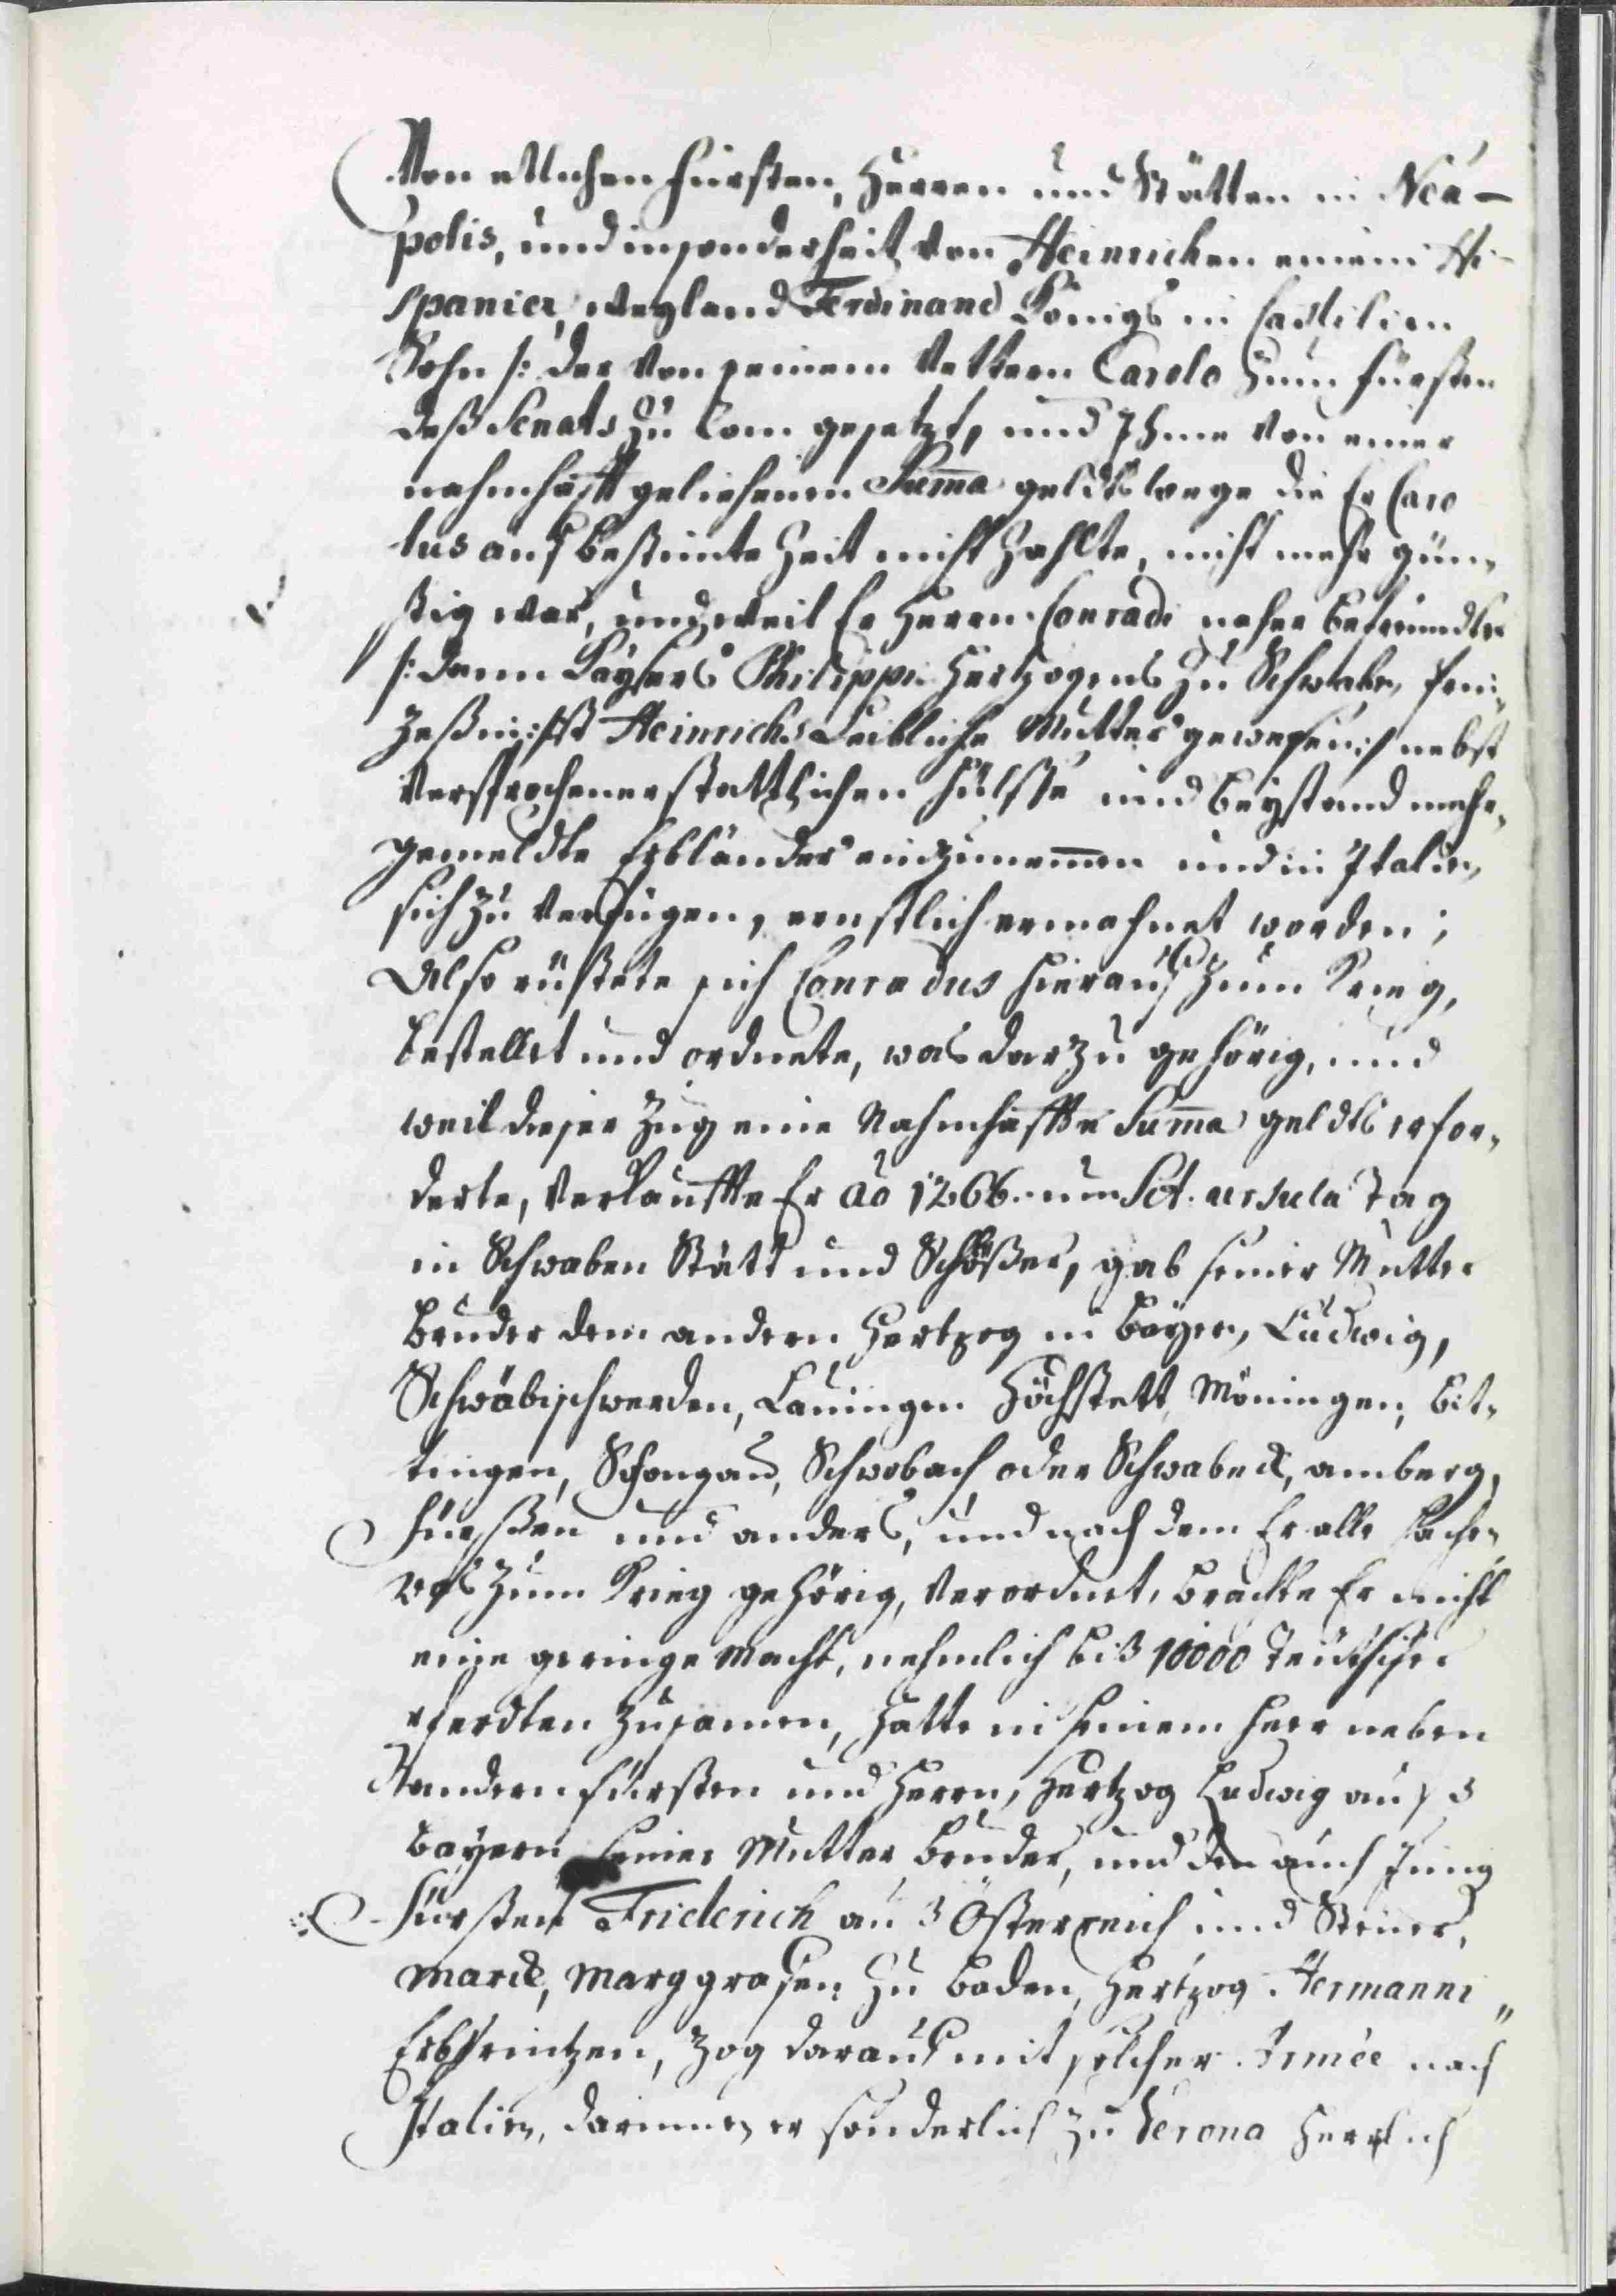 Von etlichen Fürsten, Herren und Stätten in Nea-
polis, und insonderheit von Heinrichen einem Hi-
spanier, weyland Ferdinand Königs in Castilien
Sohn /: der von seinem Vettern Carolo zum Fürsten
deß Senats zu Rom gesetzt, und Ihme von einer
nahmhafft geliehenen Suma geldts wege die Er Caro
lus auf bestimte Zeit nicht zahlte, nicht mehr gün,
stig war, und weil Er Herrn Conradi naher befreundter
/: denn Kaysers Philippi Hertzogens zu Schwaben,
Heinrichs Leibliche Mutter gewesen :/ nebst
versprochener stattlichen hülffe und beystand mehr,
gemeldte Erbländer einzunemen und in Italien,
sich zu verfügen, ernstlich ermahnet worden;
Also rüstete sich Conradus hierauf zum Krieg,
bestellet und ordnete, was darzu gehörig, und
weil dieser Zug eine Nahmhaffte Suma geldts erfor,
derte, verkauffte Er ao 1266. um Sct. ursula Tag
in Schwaben Stätt und Schlößer, gab seiner Mutter
Bruder dem andern Hertzog in Bayern, Ludwig,
Schwäbischwerden, Lauingen Höchstett, Möningen,
tingen, Schongau, Schwobach oder Schwabeck, amberg,
Füeßen und anders, und nach dem Er alle sachen
was zum Krieg gehörig, verordnet, brachte Er nicht
eine geringe Macht, nehmlich biß 10000 Teutscher
Pferdten zusamen, hatte in seinem Heer neben
andern Fürsten und Herrn, Hertzog Ludwig auß
Bayern seiner Mutter Bruder, und den auch Jung
Fürsten Friderich auß Österreich und Steuer,
marck, Marggrafen zu Baden, Hertzog Hermanni
Erbprintzen, zog darauf mit solcher Armée nach
Italien, darinnen er sonderlich zu Verona Herrlich